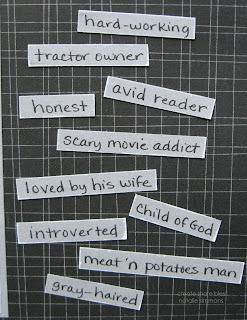 hard-working
tractor owner
avid reader
honest
scary movie addict
loved by his wife
child of God
introverted
meat 'n potatoes man
gray-haired
create.share.bless
natalie simmons